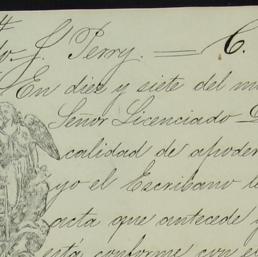 J. Perry. = C.
En diez y siete del m
Señor Licenciado D
calidad de apoder
yo el Escribano l
acta que antecede y
está conforme con e